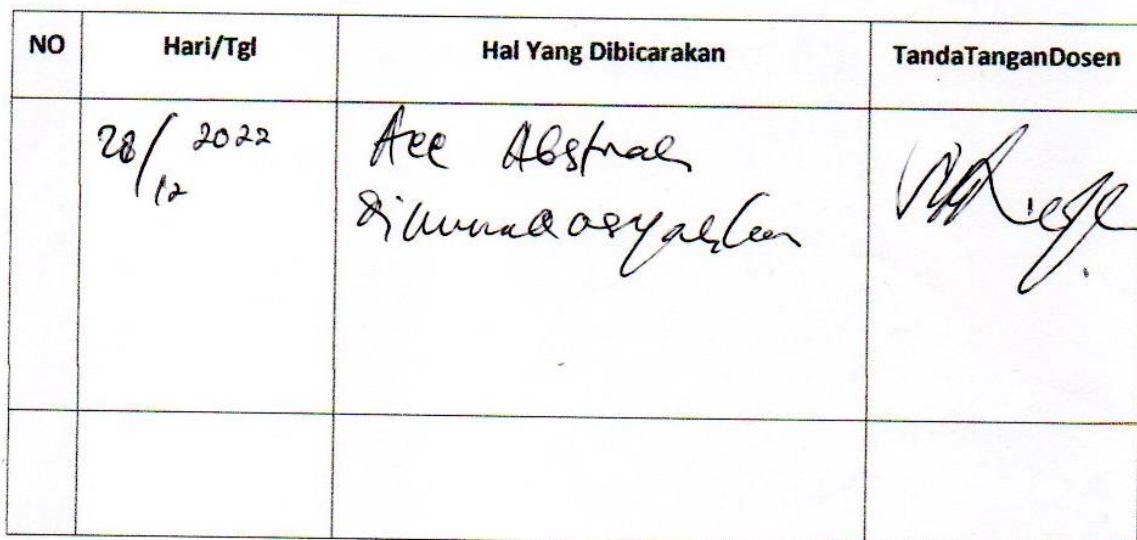 NO Hari/Tgl Hal Yang Dibicarakan TandaTanganDosen
28/12 2022 Acc Abstrak
dimunaqasyahkan